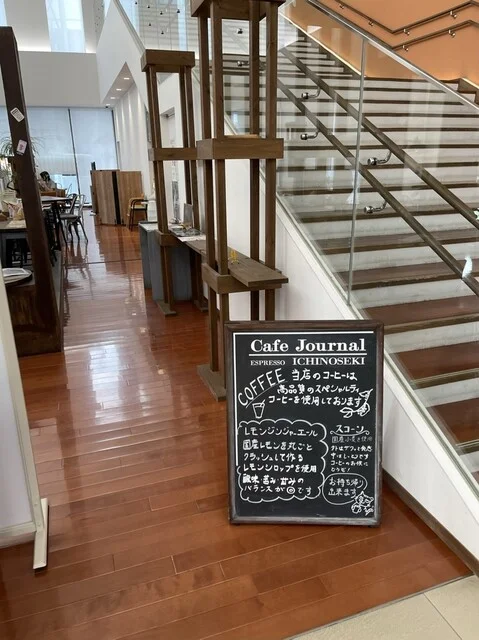 Cafe Journal
ESPRESSO ICHINOSEKI
COFFEE 当店のコーヒーは
高品質のスペシャルティ
コーヒーを使用しております
レモンジンジャーエール
国産レモンを丸ごと
クラッシュして作る
レモンシロップを使用
酸味・苦み・甘みの
バランスが◎です
スコーン
国産小麦使用
外はザクッと焼き
中はしっとりです
コーヒーのお供に
お持ち帰り
出来ます